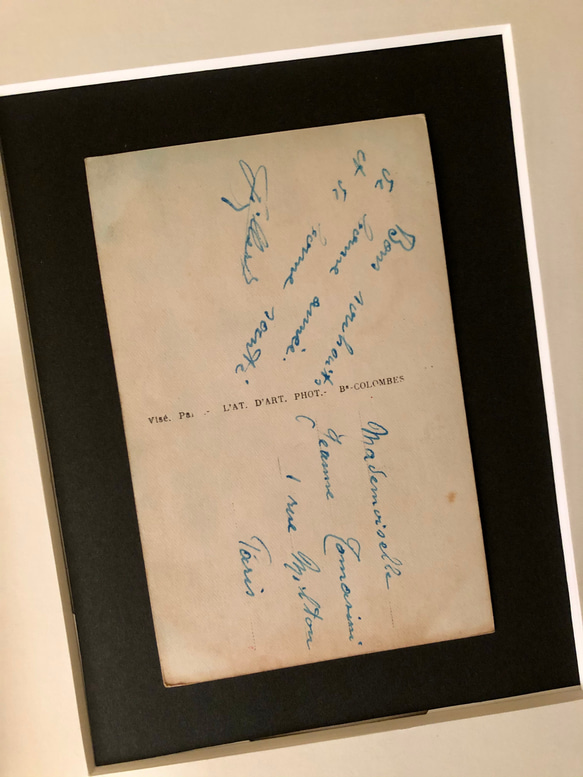 de Bons souhaits
et de bonne année.
bonne santé.
Visé. Pa
L'AT. D'ART. PHOT.- Bs-COLOMBES
Mademoiselle
Jeanne
1 rue Milton
Paris